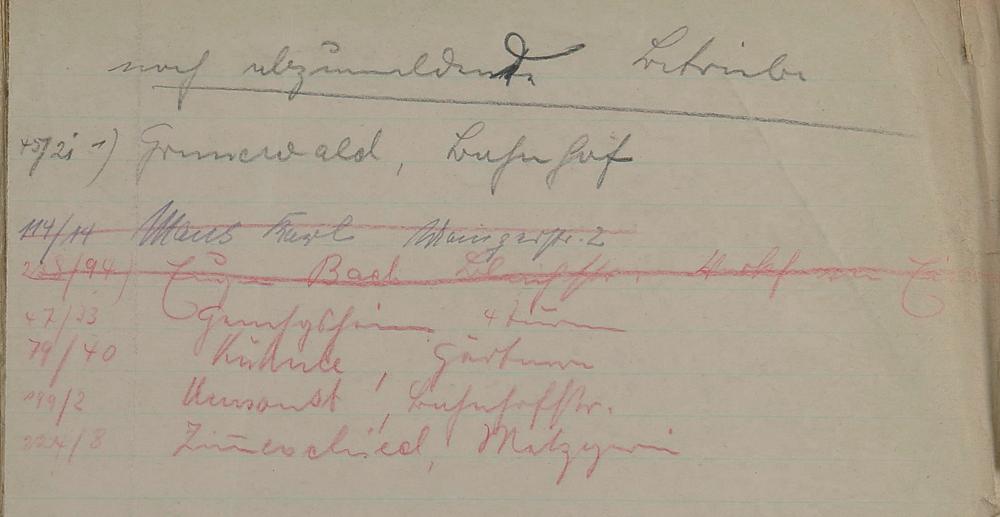 noch abzumeldende Betriebe
45/21 1) Grunewald, Bahnhof
114/14 Maus Karl Mainzerstr. 2
238/94) Eugen Bach
47/23
79/40 Kühnle, Gärtnerei
199/2 Umsonst, Bahnhofstr.
224/8 Zimerschied, Metzgerei